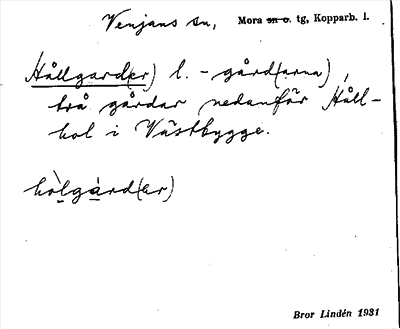 Venjans sn, Mora sn o. tg, Kopparb. l.
Hållgard(er) l. -gård(arna),
två gårdar nedanför Håll-
hol i Västbygge.
hòlgàrd(er)
Bror Lindén 1931